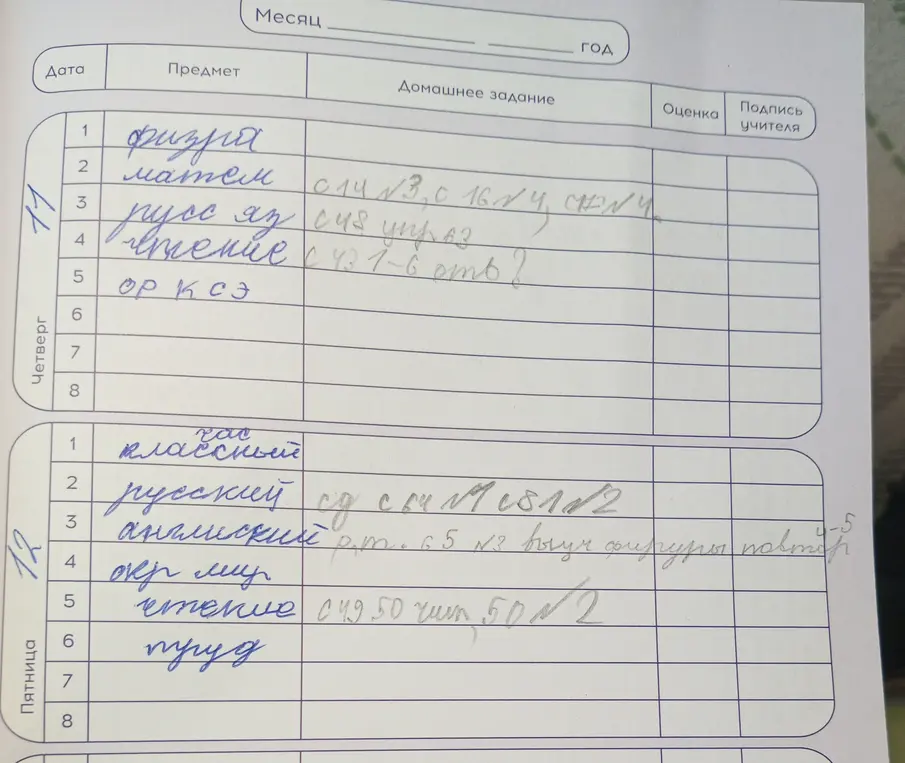 Месяц
год
Дата Предмет Домашнее задание Оценка Подпись учителя
Четверг 11
1 физра
2 матем с 14 №3, с 16 №4, №4.
3 русс яз с 48 упр 63
4 чтение с 43 1-6 отв ?
5 ор к сэ
6
7
8
Пятница 12
1 классный час
2 русский с 64 №1 с 51 №2
3 английский р.т. с 5 №3 выуч фигуры повтор 4-5
4 окр мир
5 чтение с 49 50 чит, 50 №2
6 труд
7
8